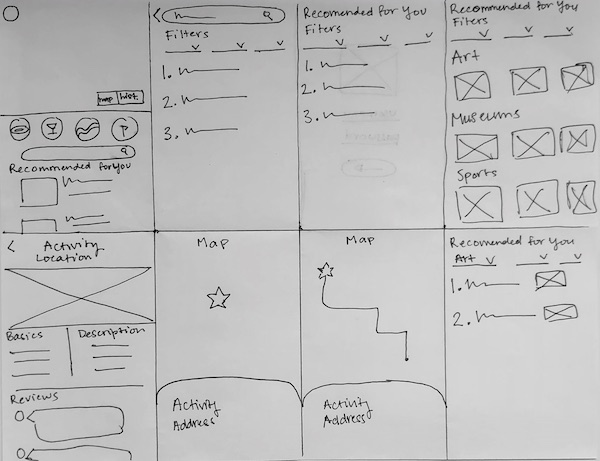 map list
Recommended for You
Filters
1.
2.
3.
Recomended for You
Fiters
1.
2.
3.
Recommended for You
Filters
Art
Museums
Sports
< Activity
Location
Basics
Description
Reviews
Map
Activity
Address
Map
Activity
Address
Recomended for You
Art
1.
2.